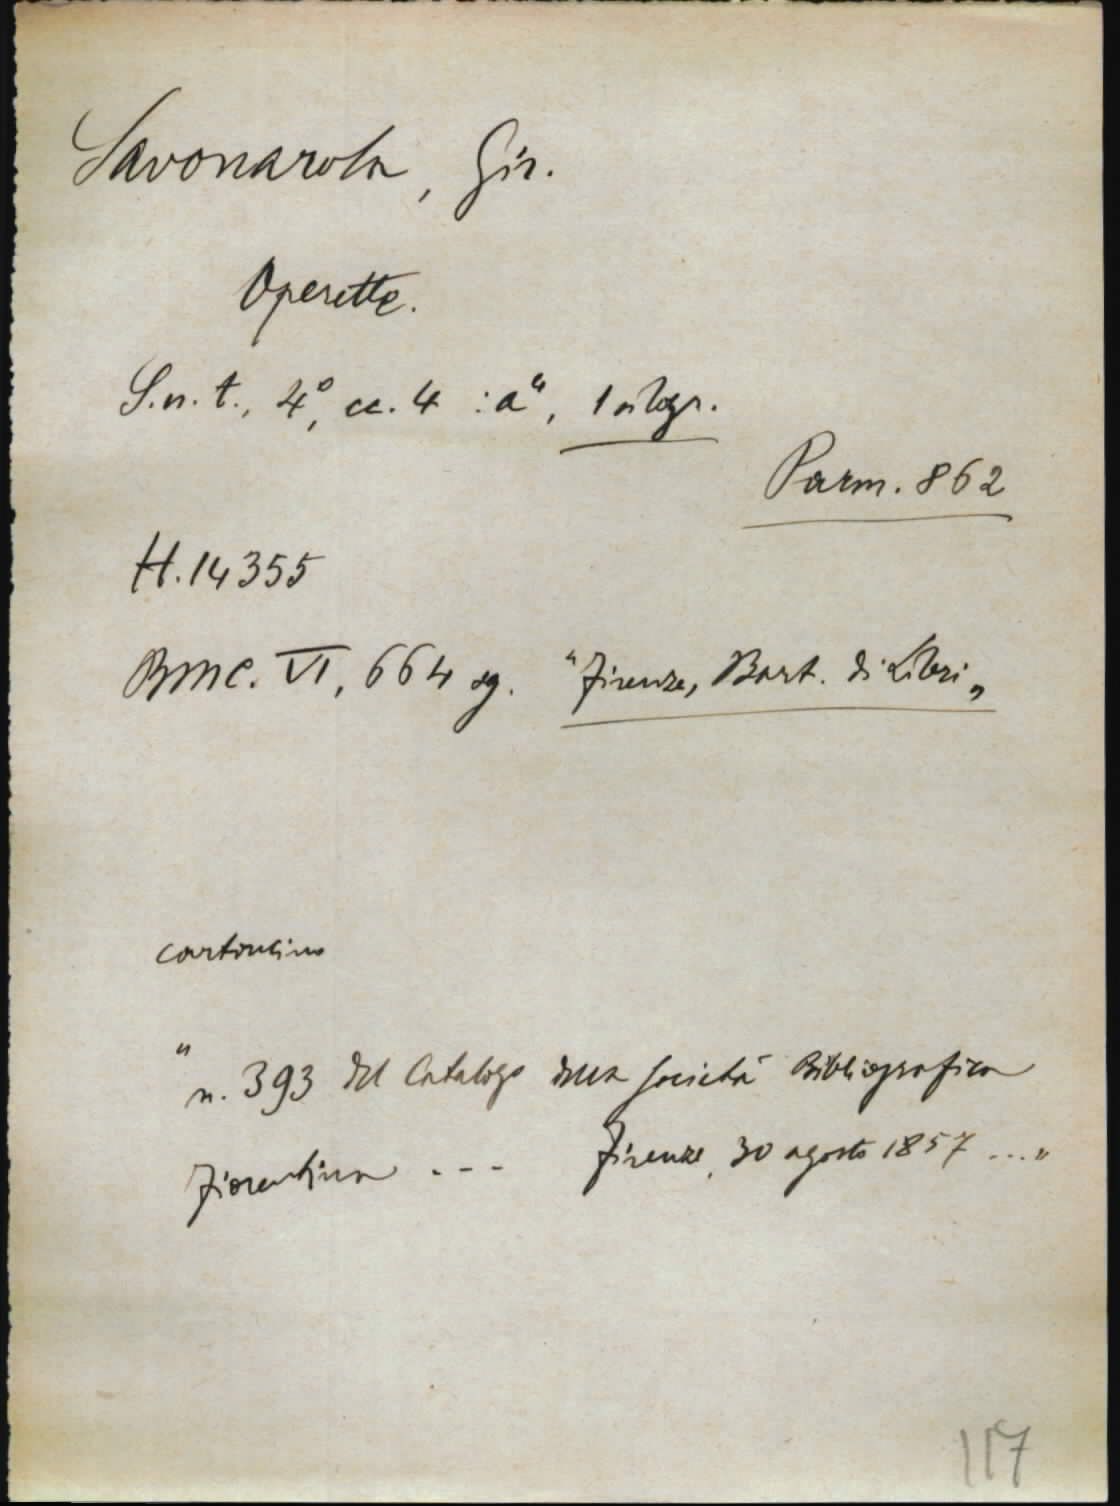 Savonarola, Gir.
Operette.
S.n.t., 4°, cc. 4 : a⁴, 1 silogr.
Parm. 862
H. 14355
BMC. VI, 664 sg. "Firenze, Bart. di Libri„
cartoncino
"n. 393 del Catalogo della Società Bibliografica
Fiorentina --- Firenze, 30 agosto 1857 ..."
117